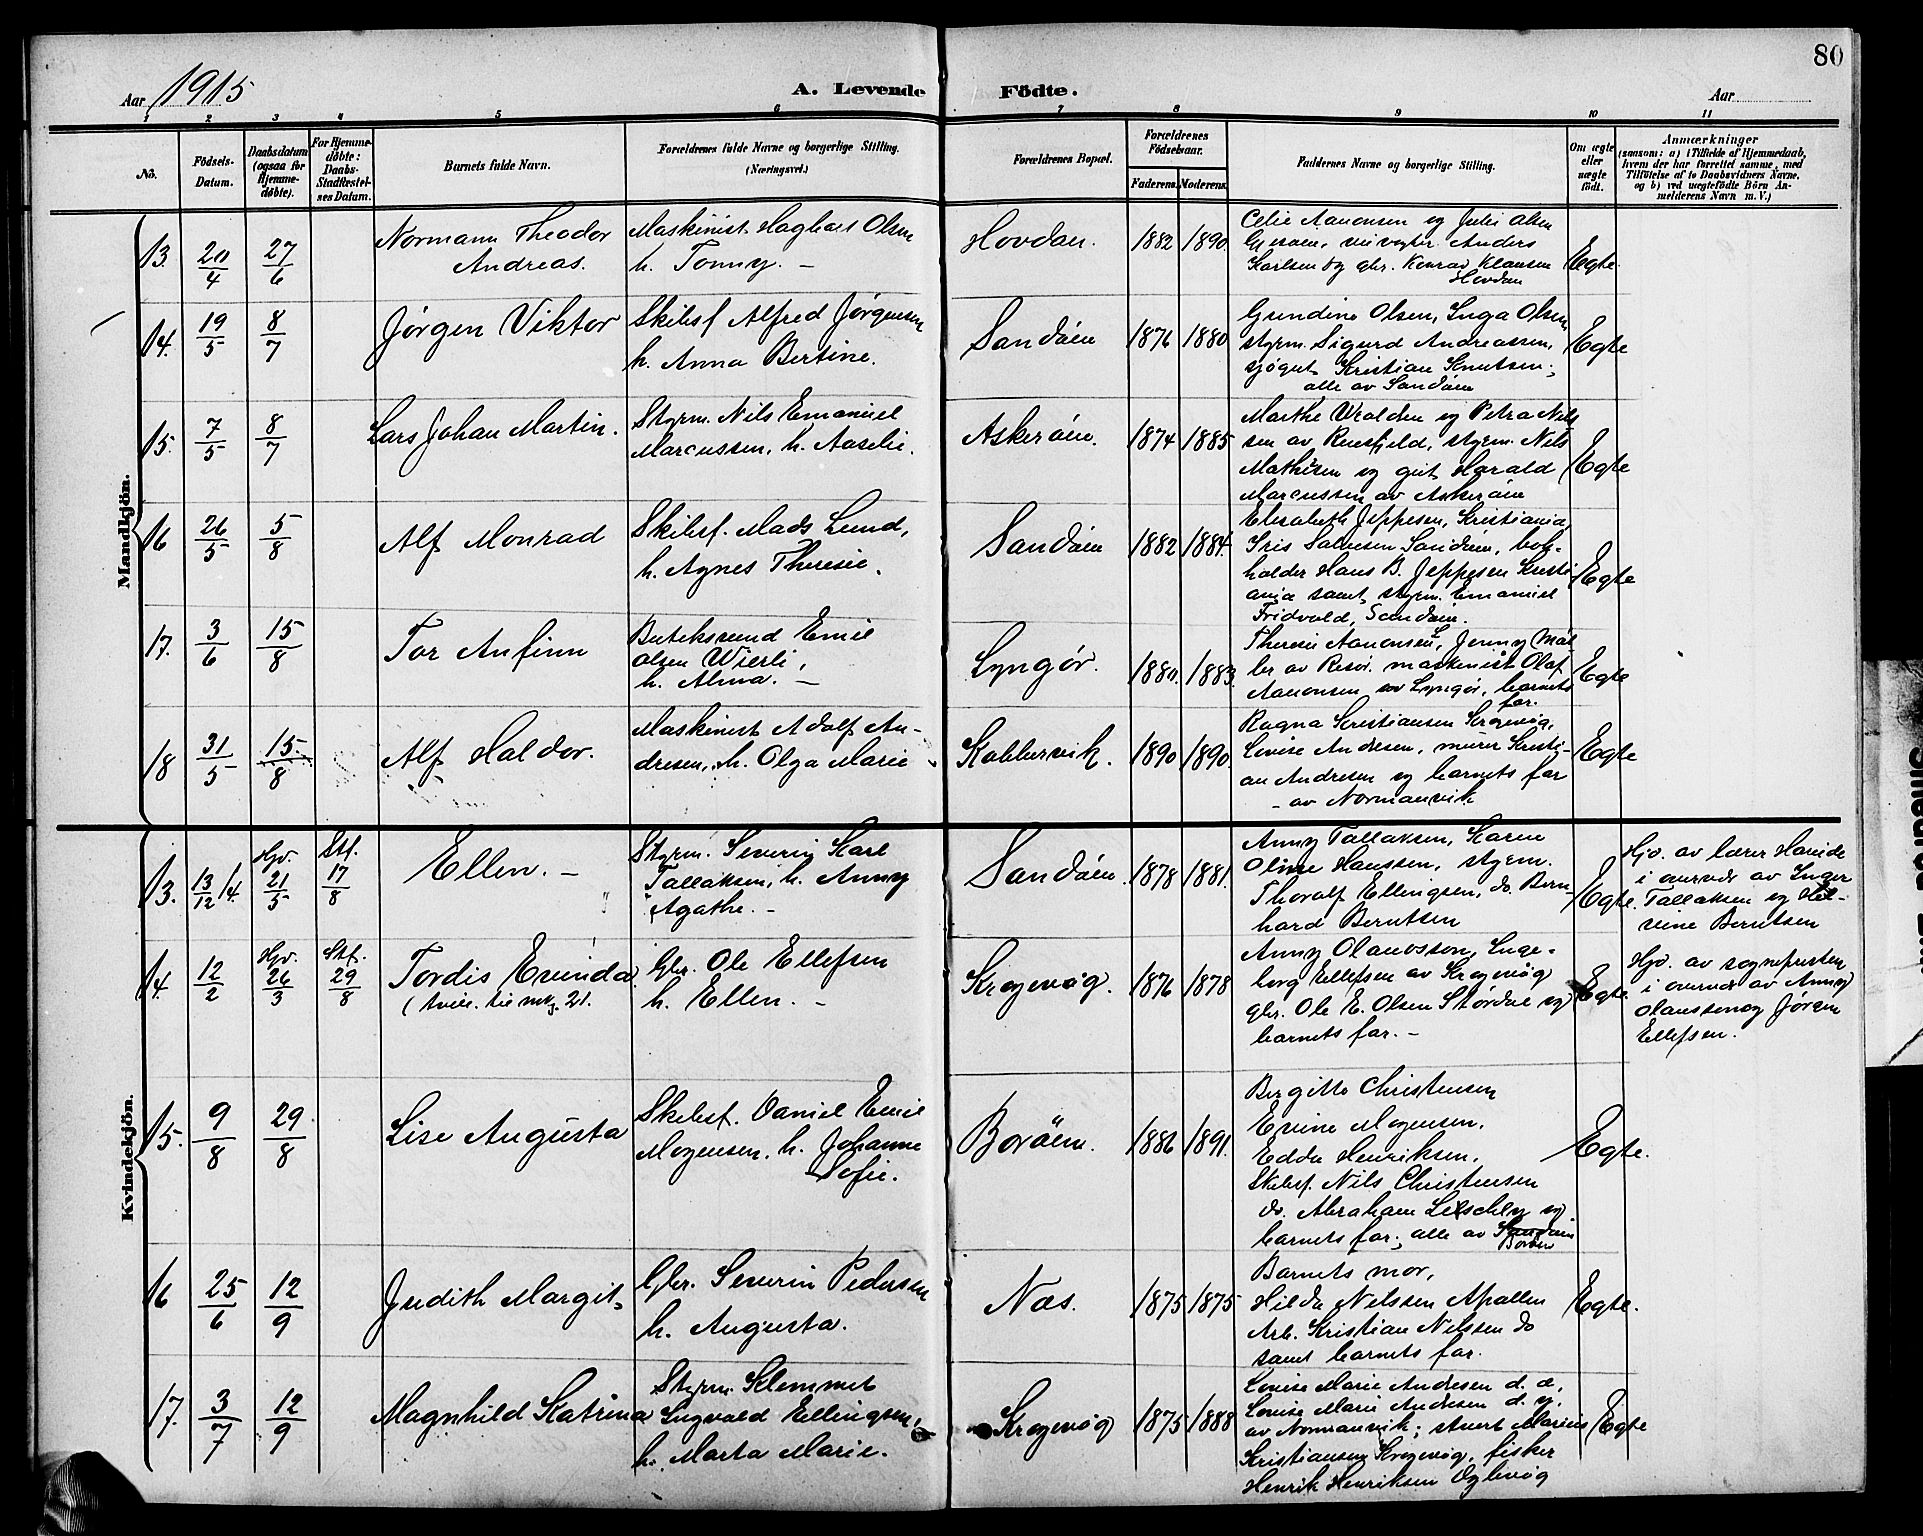 80
Aar 1915
A. Levende Födte.
Aar
1 2 3 4 5 6 7 8 9 10 11
No.
Födsels-Datum.
Daabsdatum (ogsaa for Hjemmedöbte).
For Hjemmedöbte: Daabs-Stadfæstelses Datum.
Barnets fulde Navn.
Forældrenes fulde Navne og borgerlige Stilling. (Næringsvei.)
Forældrenes Bopæl.
Forældrenes Födselsaar.
Faderens. Moderens.
Faddernes Navne og borgerlige Stilling.
Om ægte eller uægte født.
Anmærkninger
(saasom: a) i Tilfælde af Hjemmedaab, hvem der har forrettet samme, med Tilföielse af to Daabsvidners Navne, og b) ved uægtefödte Börn Anmelderens Navn m. V.)
Mandkjön.
13. 20/4 27/6
Normann Theodor
Andreas.
Maskinist Hagbart Olsen
h. Tonny. –
Hovdan. 1882 1890
Celie Aanonsen og Juli Olsen
Anders
Karlsen og gbr. Konrad Klausen
Hovdan
Egte.
14. 19/5 8/7
Jørgen Viktor
Skibsf. Alfred Jørgensen
h. Anna Bertine.
Sandöen 1876 1880
Gundine Olsen, Inga Olsen,
styrm. Sigurd Andreassen,
sjøgut Kristian Knutsen,
alle av Sandöen
Egte
15. 7/5 8/7
Lars Johan Martin.
Styrm. Nils Emanuel
Marcussen, h. Aaselie.
Askeröen. 1874 1885
Marthe og Petra Nils
sen av styrm. Nils
Mathisen og gut Harald
Marcussen av Askeröen
Egte
16 26/5 5/8
Alf Monrad
Skibsf. Mads Lund,
h. Agnes Theresie.
Sandöen 1882 1884.
Elisabeth Jeppesen, Kristiania,
Iris Salvesen Sandöen, bok-
holder Hans B. Jeppesen Kristi
ania samt styrm. Emanuel
Fridvald, Sandöen.
Egte
17. 3/6 15/8
Tor Anfinn
Emil
Olsen Wierli,
h. Alma. –
Lyngör. 1880. 1883.
Theresie Aanonsen, Jenny Møl
ler av Risör. maskinist Olaf
Aanonsen av Lyngör, barnets
far.
Egte
18 31/5 15/8
Alf Haldor.
Maskinist Adolf An-
dresen, h. Olga Marie
Kabbervik. 1890 1890
Ragna Kristiansen Kragevög,
Lovise Andresen, murer Kristi-
an Andresen og barnets far
– av Normanvik
Egte
Kvindekjön.
13. 13/12 14. Hjd. 21/5 Stf. 17/8
Ellen. –
Styrm. Severin Karl
Tallaksen, h. Anny
Agathe. –
Sandöen. 1878 1881.
Anny Tallaksen, Karen
Oline Hanssen, styrm.
Thoralf Ellingsen, do. Bern-
hard Berntsen
Egte.
Hjd. av lærer Hareide
i overvær av Inger
Tallaksen og
Berntsen
14. 12/2 Hjd. 26/3 Stf. 29/8
Tordis Evinda
Gbr. Ole Ellefsen
h. Ellen. –
Kragevøg. 1876 1878
Anny Olaussen, Inge-
borg Ellefsen av Kragevøg
gbr. Ole E. Olsen Størdal og
barnets far. –
Egte.
Hjd. av sognepresten
i overvær av Anny
Olaussen og Jörgen
Ellefsen.
15. 9/8 29/8
Lise Augusta
Skibsf. Daniel Emil
Mogensen. h. Johanne
Sofie.
Boröen. 1886 1891.
Birgitte Christensen
Evine Mogensen.
Edda Henriksen.
Skibsf. Nils Christensen
do. Abraham og
barnets far., alle av Sandöen
Boröen
Egte.
16 25/6 12/9
Judith Margit
Gbr. Severin Pedersen
h. Augusta.
Næs. 1875 1875
Barnets mor,
Hilda Nilssen
Arb. Kristian Nilssen do
samt barnets far.
Egte.
17. 3/7 12/9
Magnhild Katrina
Styrm. Klemmet
Ingvald Ellingsen,
h. Marta Marie.
Kragevøg 1875 1888
Lovise Marie Andresen d. æ.
Lovise Marie Andresen d. y.
av Normanvik; Marius
Kristiansen Kragevøg, fisker
Henrik Henriksen
Egte